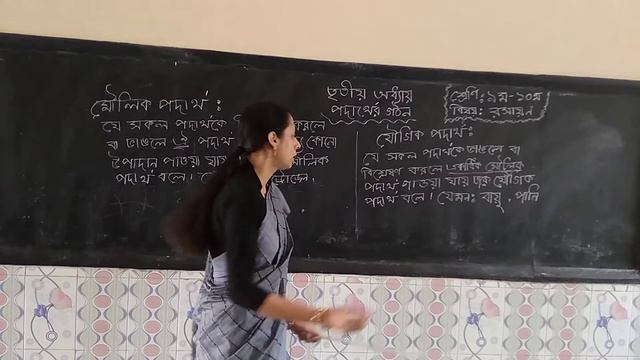 তৃতীয় অধ্যায়
পদার্থের গঠন
শ্রেণি: ৯ম-১০ম
বিষয়: রসায়ন
মৌলিক পদার্থ :
যে সকল পদার্থকে করলে
বা ভাঙলে ঐ পদার্থ কোনো
উপাদান পাওয়া যায় মৌলিক
পদার্থ বলে।
যৌগিক পদার্থ:
যে সকল পদার্থকে ভাঙলে বা
বিশ্লেষণ করলে একাধিক মৌলিক
পদার্থ পাওয়া যায় তাকে যৌগিক
পদার্থ বলে। যেমন: বায়ু, পানি